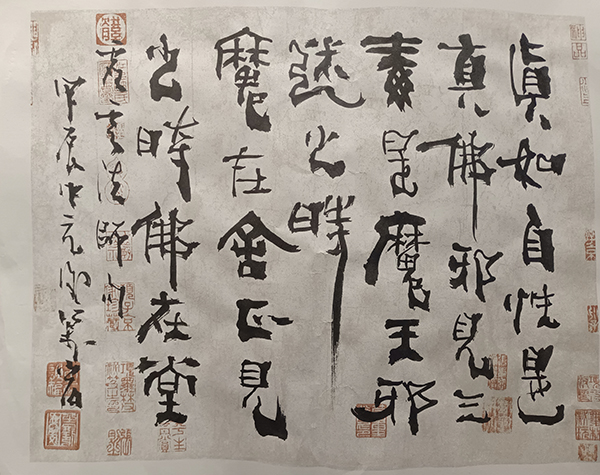 真如自性是
真佛邪見三
毒是魔王邪
迷之時
魔在舍正見
之時佛在堂
虚云法師句
甲辰中元